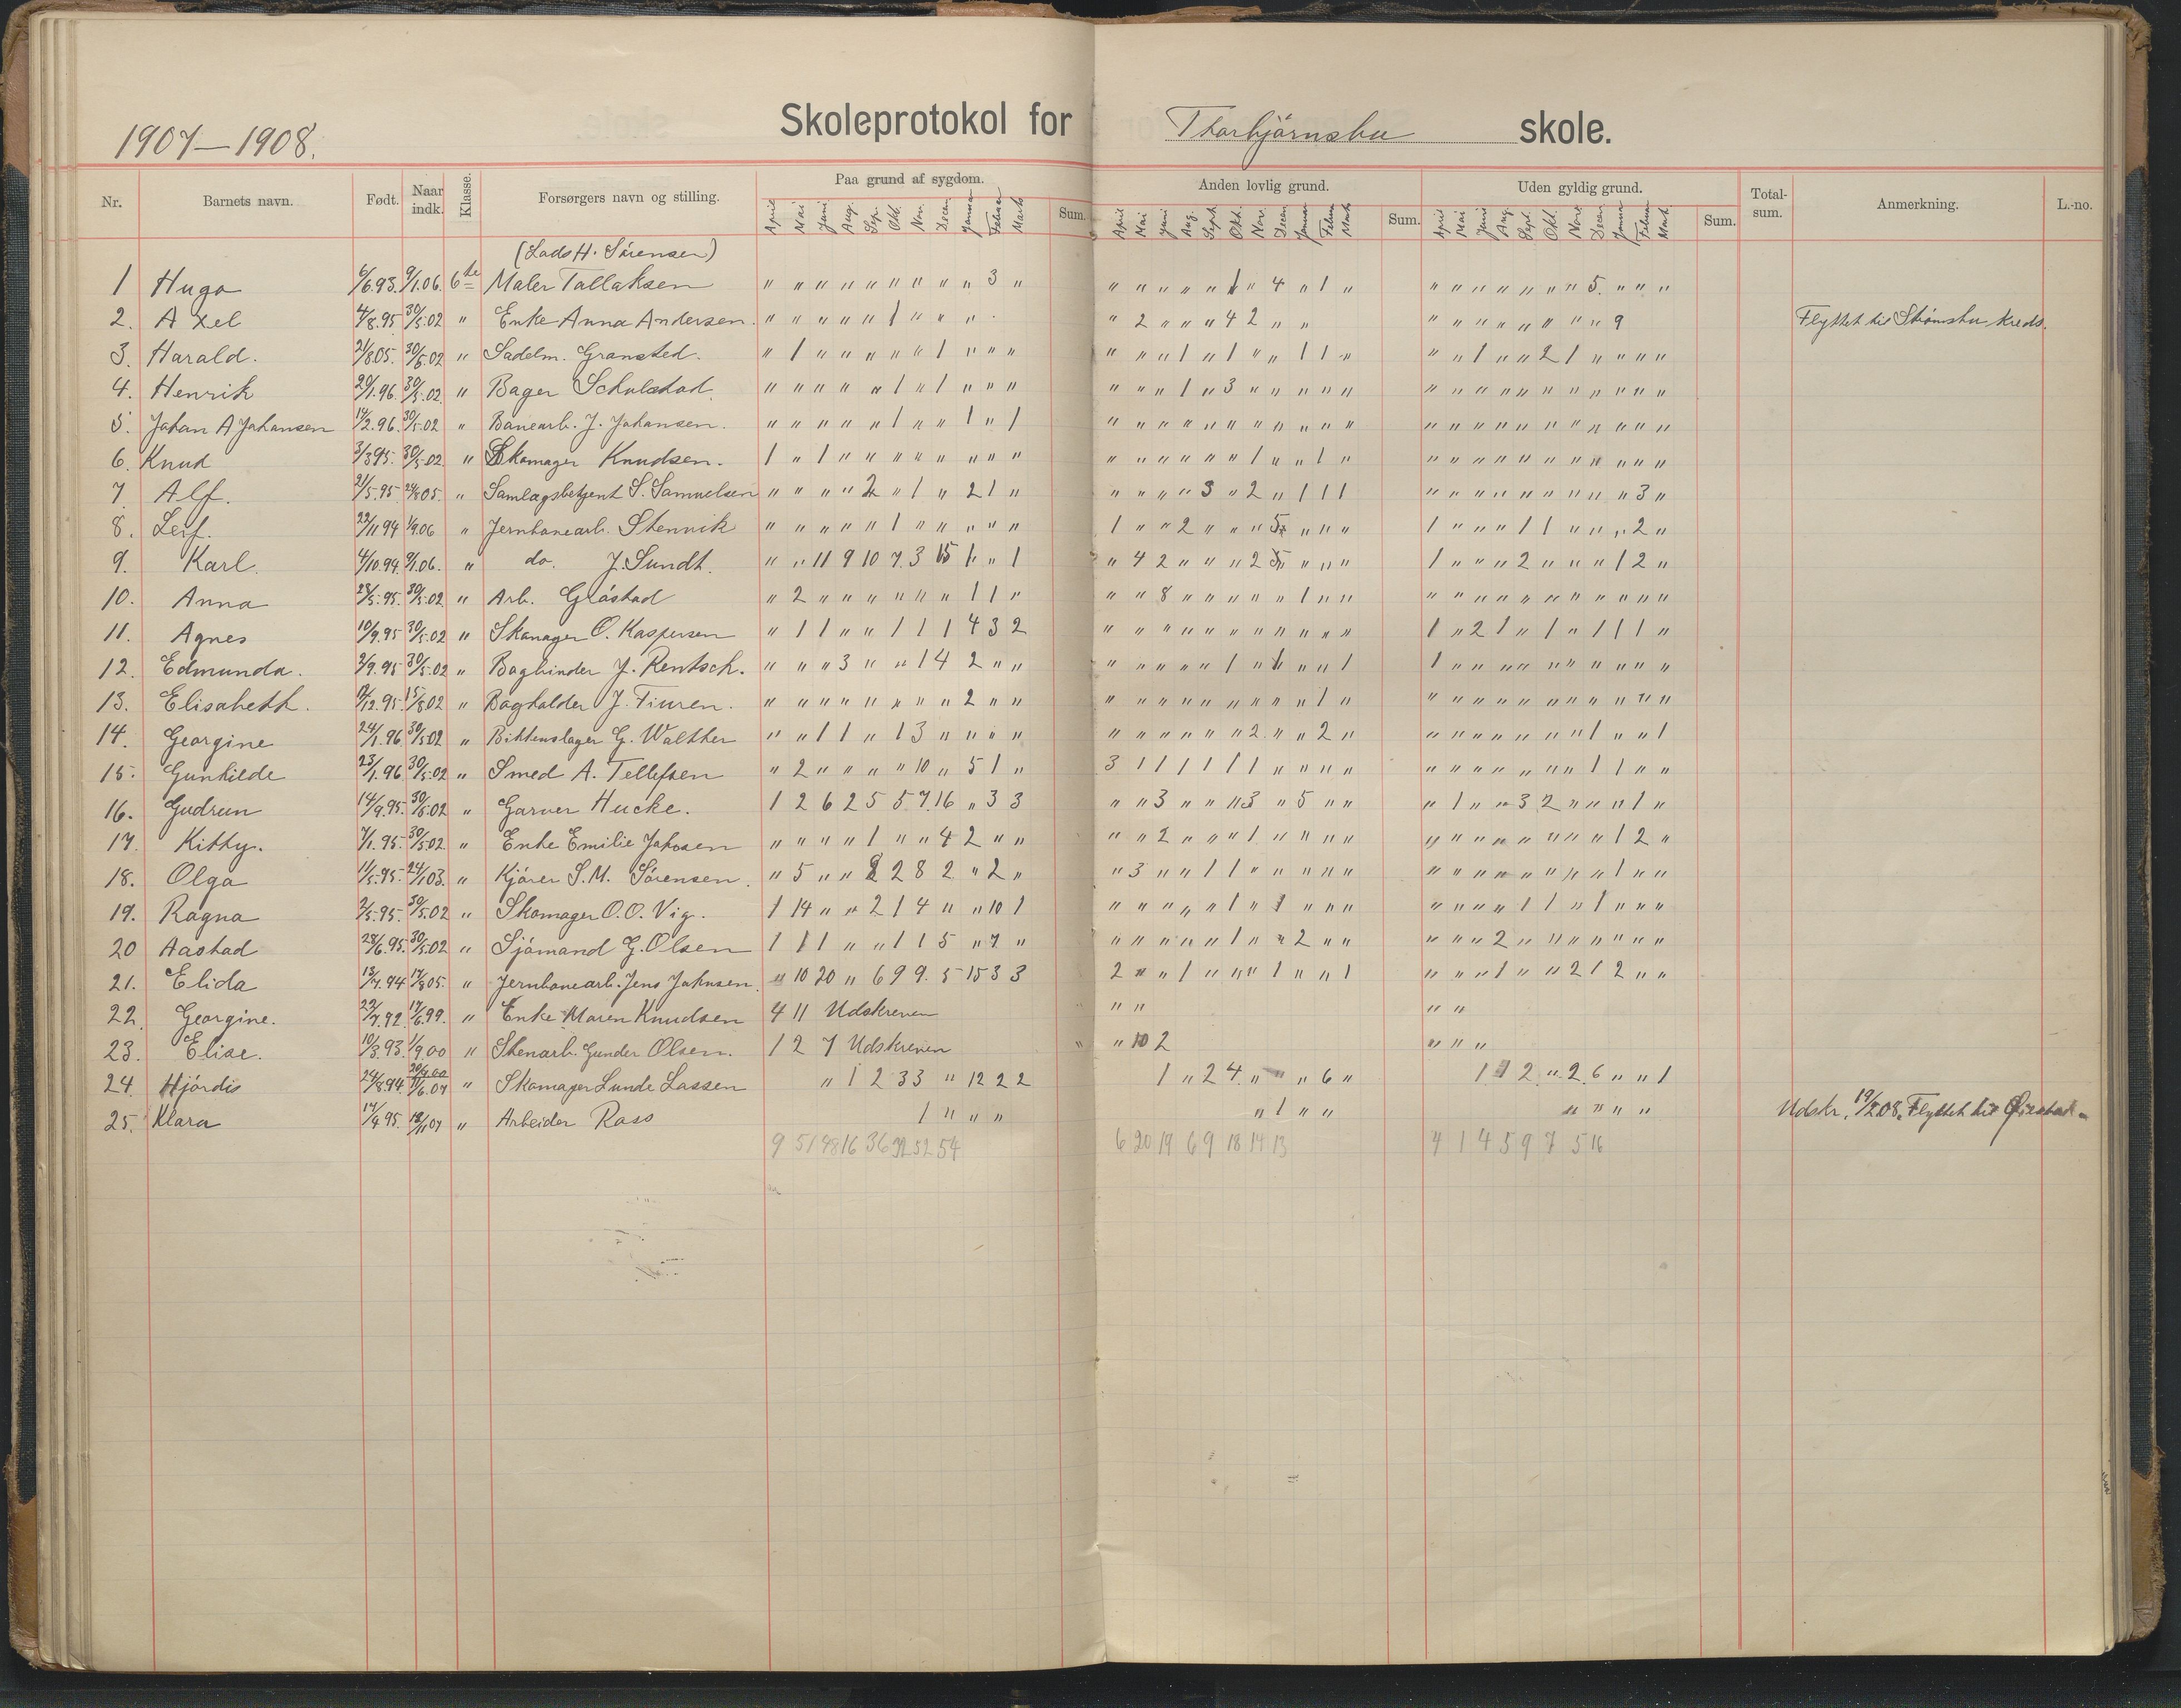 1907—1908.
Skoleprotokol for Thorbjørnsbu skole.
Nr. Barnets navn. Født. Naar indk. Klasse. Forsørgers navn og stilling. Paa grund af sygdom. Sum. Anden lovlig grund. Sum. Uden gyldig grund. Sum. Total-sum. Anmerkning. L.-no.
April Mai Juni Aug. Sep. Okt. Nov. Decem Januar Februar Marts
April Mai Juni Aug. Sept Okt. Nov. Decem Januar Februar Marts
April Mai Juni Aug. Sept. Okt. Nov. Decem Januar Februar Marts
(Lods H. Sørensen)
1 Hugo 6/6.93. 9/1.06. 6te Maler Tallaksen " " " " " " " " " 3 " " " " " " 1 " 4 " 1 " " " " " " " " 5. " " "
2. Axel 4/8.95 30/5.02 " Enke Anna Andersen. " " " " " 1 " " " " 2 " " " 4 2 " " " " " " " " " " 9 Flyttet til Strømsbu kreds.
3. Harald. 21/8.05. 30/5.02 " Sadelm. Gransted. " 1 " " " " " 1 " " " " " " 1 " 1 " " 1 1 " " " 1 " " 2 1 " " " "
4. Henrik 20/1.96. 30/5.02. " Bager Schulstad. " " " " " 1 " 1 " " " " " " 1 " 3 " " " " " " " " " " " " " " " "
5. Johan A Johansen 14/2.96. 30/5.02 " Banearb. J. Johansen. " " " " " 1 " " 1 " 1 " " " " " " " " " " " " " " " " " " " " " "
6. Knud 3/3.95. 30/5.02 " Skomager Knudsen. 1 " 1 " " " " " " " " " " " " " " 1 " " 1 " " " " " " " " " " " "
7. Alf. 21/5.95 24/8.05. " Samlagsbetjent S. Samuelsen " " " " 2 " 1 " 2 1 " " " " " 3 " 2 " 1 1 1 " " " " " " " " " 3 "
8. Leif. 22/11.94 1/9.06 " Jernbanearb. Stennik " " " " " 1 " " " " " 1 " " 2 " " " 5 " " " 1 " " " 1 1 " " " 2 "
9. Karl. 4/10.94. 9/1.06. " do. J. Sundt. " " 11 9 10 7. 3 15 1 " 1 " 4 2 " " " 2 5 " " " 1 " " " 2 " " " 1 2 "
10. Anna 28/5.95. 30/5.02 " Arb. Gløstad " 2 " " " " " " 1 1 " " " 8 " " " " " 1 " " " " " " " " " " " " "
11. Agnes 10/9.95 30/5.02 " Skomager O. Kaspersen " 1 1 " " 1 1 1 4 3 2 " " " " " " " " " " " 1 " 2 1 " 1 " 1 1 1 "
12. Edmunda. 2/9.95 30/5.02 " Bogbinder J. Rentsch. " " " 3 " " 1 4 2 " " " " " " " 1 " 1 " " 1 1 " " " " " " " " " "
13. Elisabeth. 12/12.95. 15/8.02 " Bogholder J. Fiuren. " " " " " " " " 2 " " " " " " " " " " " 1 " " " " " " " " " " " "
14. Georgine 24/1.96 30/5.02 " Bøttenslager G. Walther " " 1 1 " 1 3 " " " " " " " " " " 2. " " 2 " " " " " " " " 1 " " 1
15. Gunhilde 23/1.96 30/5.02 " Smed A. Tellefsen " 2 " " " " 10 " 5 1 " 3 1 1 1 1 1 1 " " " " " " " " " " " 1 1 " "
16. Gudrun 14/9.95. 30/5.02 " Garver Hucke. 1 2 6 2 5 5 7. 16 " 3 3 " " 3 " " " 3 " 5 " " " 1 " " 3 2 " " " 1 "
17. Kitty. 7/1.95. 30/5.02 " Enke Emilie Jakosen " " " " 1 " " 4 2 " " " " 2 " " " 1 " " " " " " " " " " " " 1 2 "
18. Olga 11/5.95. 24/1.03. " Kjører S.M. Sørensen. " 5 " " 2 2 8 2 " 2 " " 3 " " 1 1 " " " " " " " " " " " " " 1 " "
19. Ragna 2/5.95. 30/5.02 " Skomager O.O. Vig. 1 14 " " 2 1 4 " " 10 1 " " " " " 1 " 1 " " " " " " " 1 1 " 1 " " "
20 Aastad 28/6.95. 30/5.02 " Sjømand G. Olsen 1 1 1 " " 1 1 5 " 7 " " " " " " 1 " " 2 " " " " " 2 " " " " " " "
21. Elida 13/7.94 17/8.05. " Jernbanearb. Jens Johnsen. " 10 20 " 6 9 9. 5 15 3 3 2 " " 1 " " " 1 " " 1 " " " 1 " " 2 1 2 " "
22. Georgine. 22/7.92. 17/6.99. " Enke Maren Knudsen 4 11 Udskreven " " " "
23. Elise. 10/3.93. 1/9.00 " Stenarb. Gunder Olsen. 1 2 7 Udskreven " " 10 2 " " "
24. Hjördis 24/8.94 20/9.00 11/6.07 " Skomager Lunde Lassen " 1 2 3 3 " 12 2 2 1 " 2 4 " " " 6 " 1 1 2 " 2 6 " " 1
25. Klara 14/9.95. 18/11.07 " Arbeider Rass 1 " " " " 1 " " " " " " Udskr. 19/2.08. Flyttet til Øiestad.
9 51 48 16 36 32 52 54 6 20 19 6 9 18 14 13 4 1 4 5 9 7 5 16